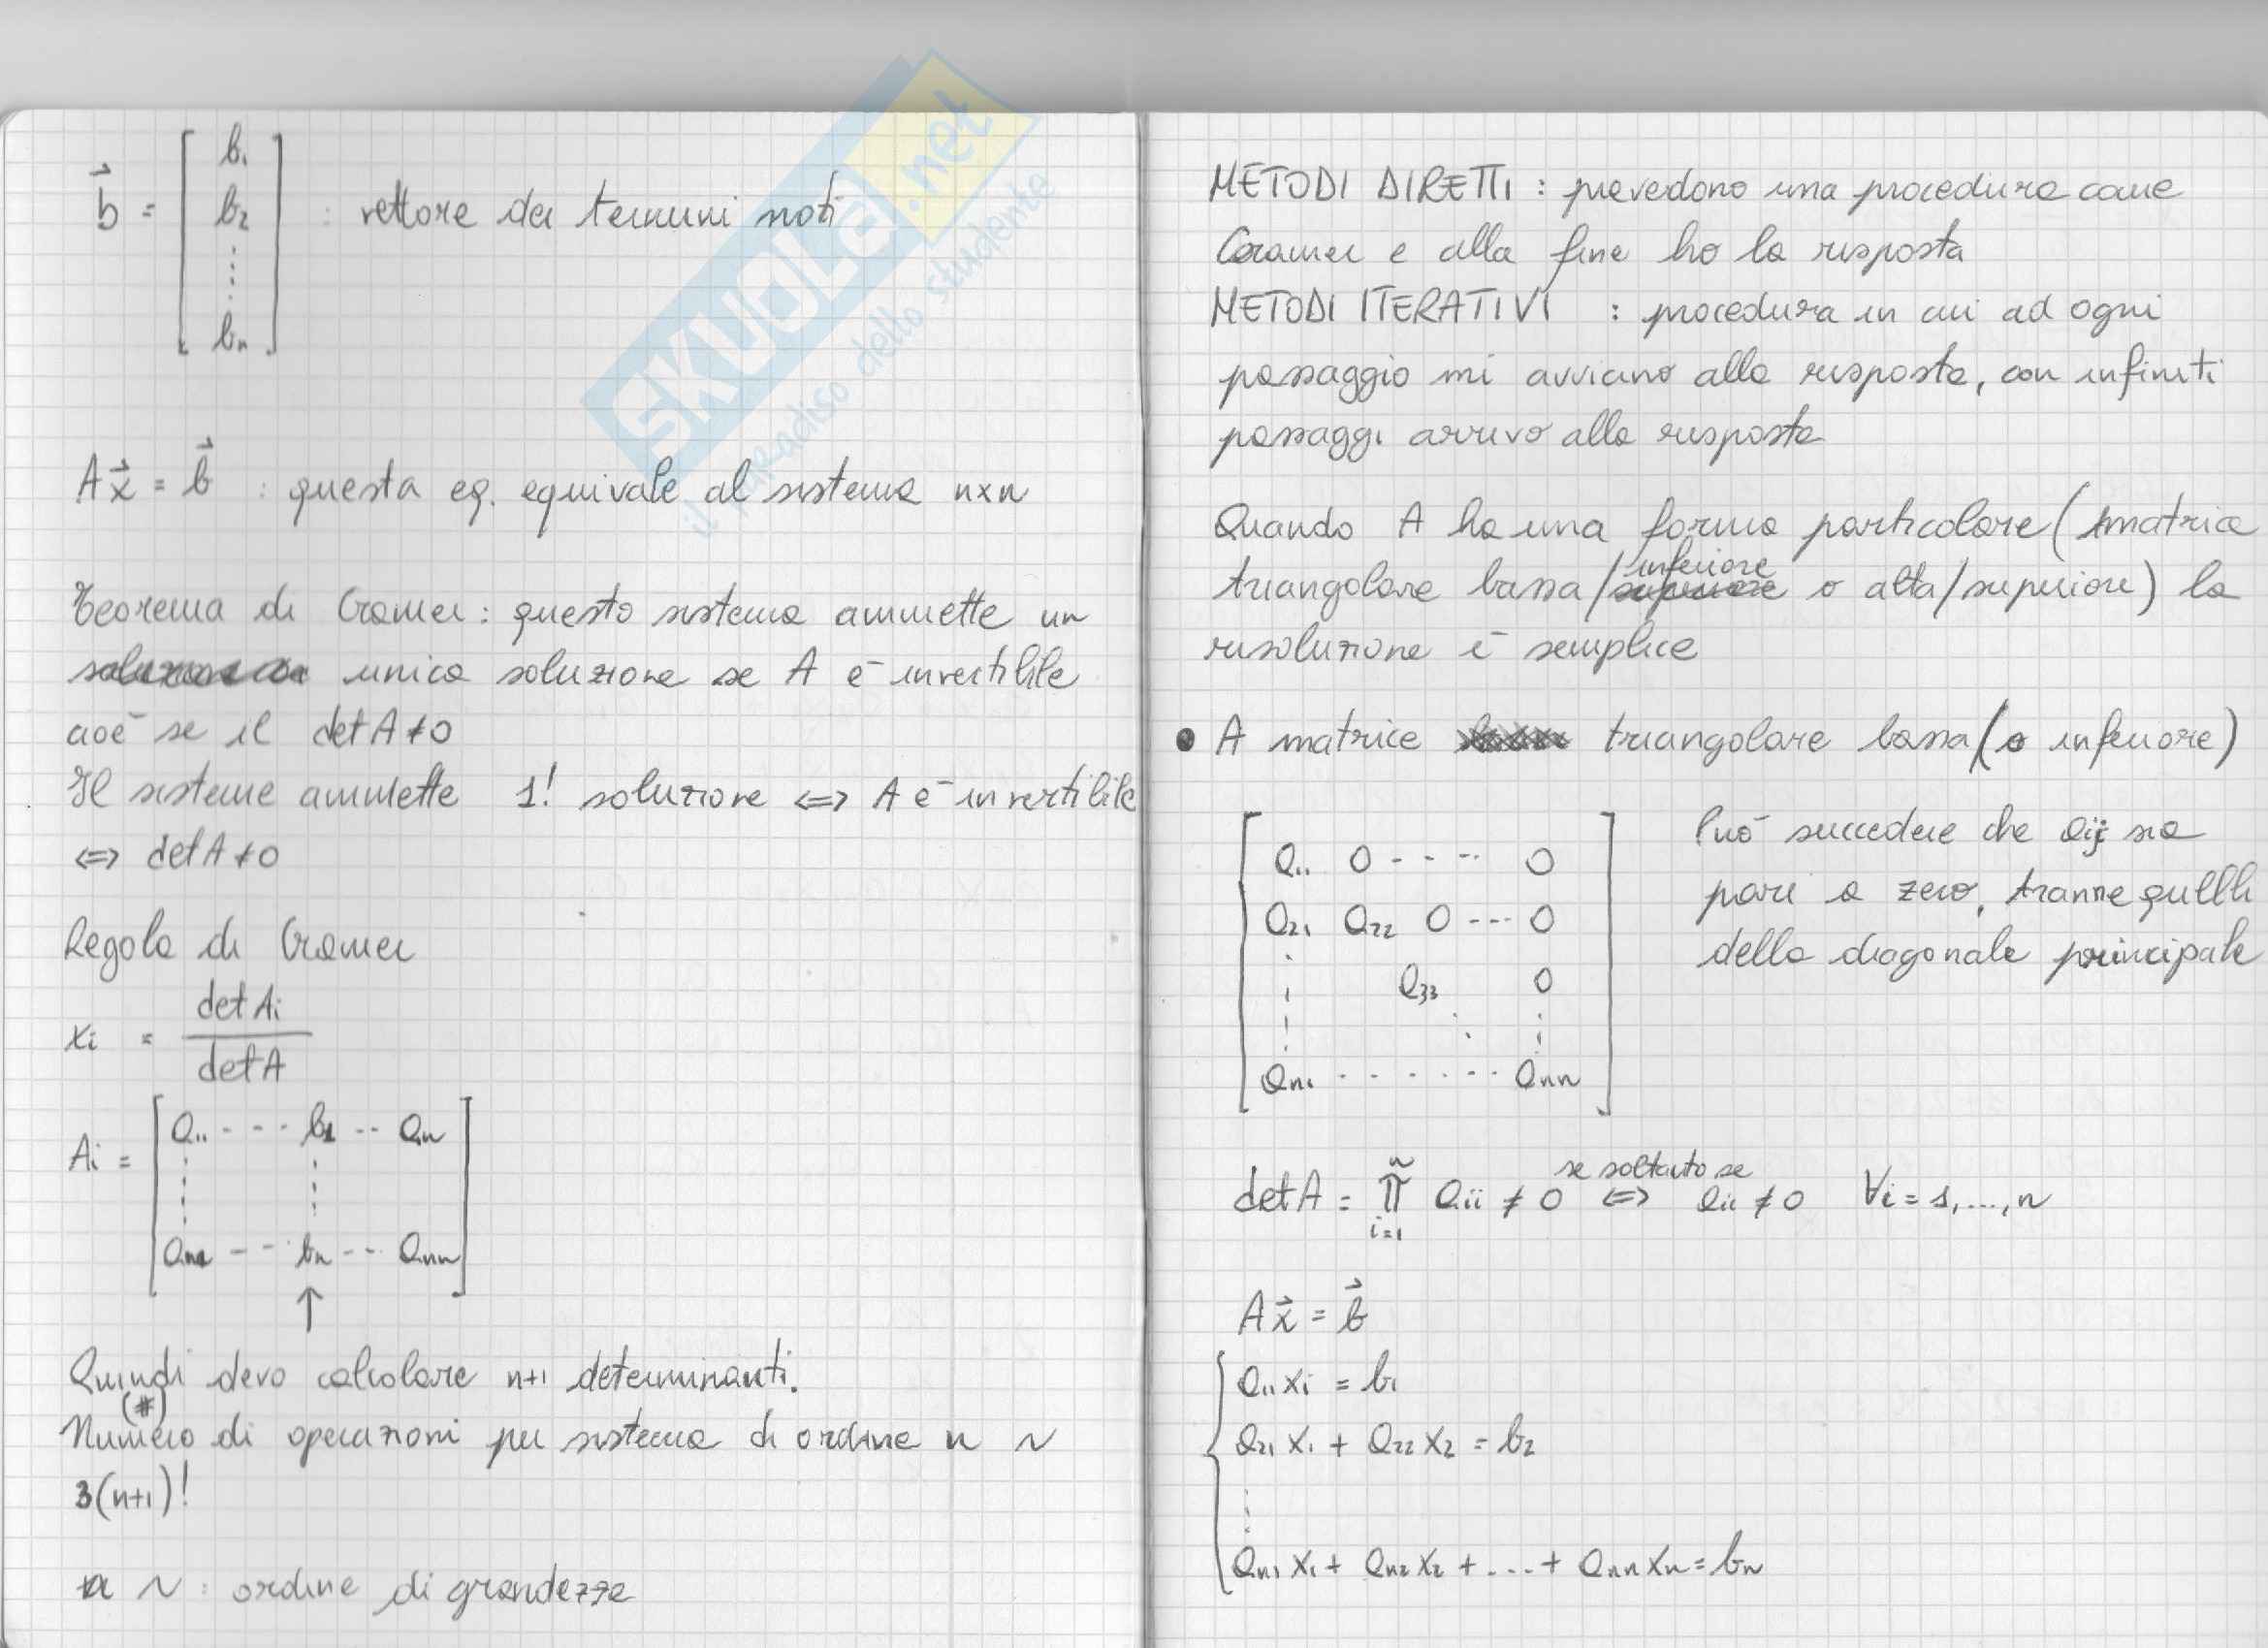 b⃗ = [ b₁ b₂ ⋮ bₙ ] : vettore dei termini noti
Ax⃗ = b⃗ : questa eq. equivale al sistema n×n
Teorema di Cramer: questo sistema ammette un
unica soluzione se A è invertibile
cioè se il det A ≠ 0
Il sistema ammette 1! soluzione ⇔ A è invertibile
⇔ det A ≠ 0
Regola di Cramer
xᵢ = det Aᵢ / det A
Aᵢ = [ a₁₁ --- b₁ -- a₁ₙ
⋮ ⋮
aₙ₁ --- bₙ --- aₙₙ ]
↑
Quindi devo calcolare n+1 determinanti.
(#)
Numero di operazioni per sistema di ordine n ~
3(n+1)!
~ : ordine di grandezza
METODI DIRETTI : prevedono una procedura come
Cramer e alla fine ho la risposta
METODI ITERATIVI : procedura in cui ad ogni
passaggio mi avvicino alla risposta, con infiniti
passaggi arrivo alla risposta
Quando A ha una forma particolare (matrice
triangolare bassa/inferiore o alta/superiore) la
risoluzione è semplice
• A matrice triangolare bassa (o inferiore)
[ a₁₁ 0 ---- 0
a₂₁ a₂₂ 0 --- 0
⋮ a₃₃ 0
⋮ ⋱ ⋮
aₙ₁ ······ aₙₙ ]
Può succedere che aᵢⱼ sia
pari a zero, tranne quelli
della diagonale principale
det A = ∏ᵢ₌₁ⁿ aᵢᵢ ≠ 0 se soltanto se ⇔ aᵢᵢ ≠ 0 ∀i = 1,...,n
Ax⃗ = b⃗
{ a₁₁x₁ = b₁
a₂₁x₁ + a₂₂x₂ = b₂
⋮
aₙ₁x₁ + aₙ₂x₂ + ... + aₙₙxₙ = bₙ
SKUOLA.net
il paradiso dello studente